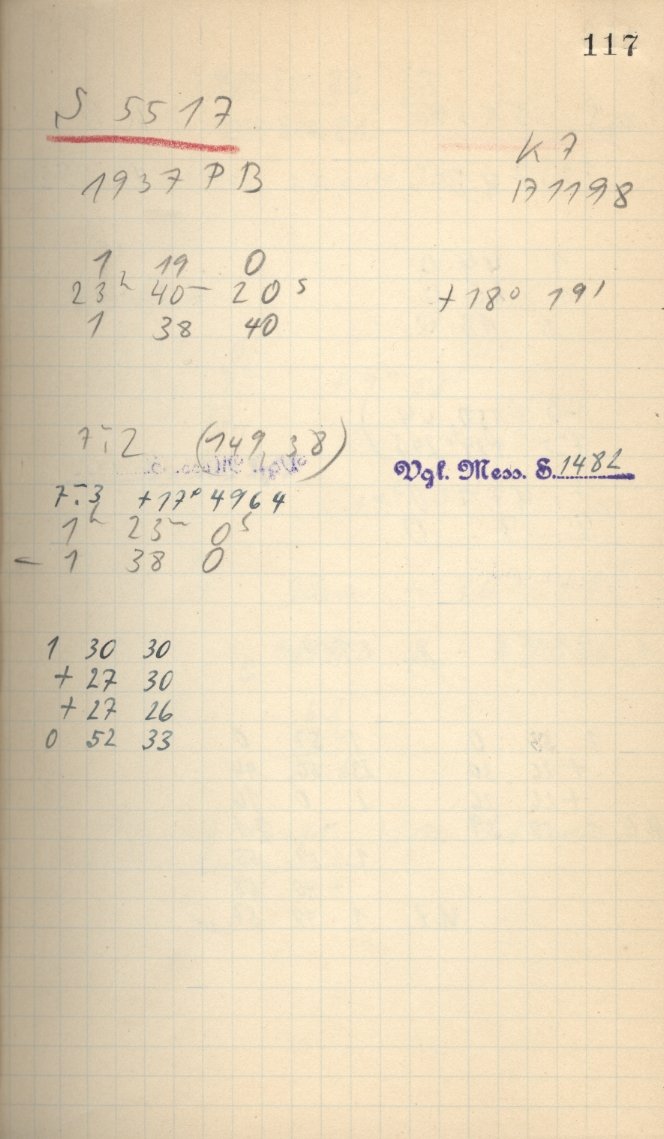 117
S 5517
1937 PB
K 7
171198
1 19 0
23h 40m 20s +18° 19'
1 38 40
7m2 (149,38)
Vgl. Mess. S. 1482
7m3 +17° 4964
1h 23m 0s
- 1 38 0
1 30 30
+ 27 30
+ 27 26
0 52 33